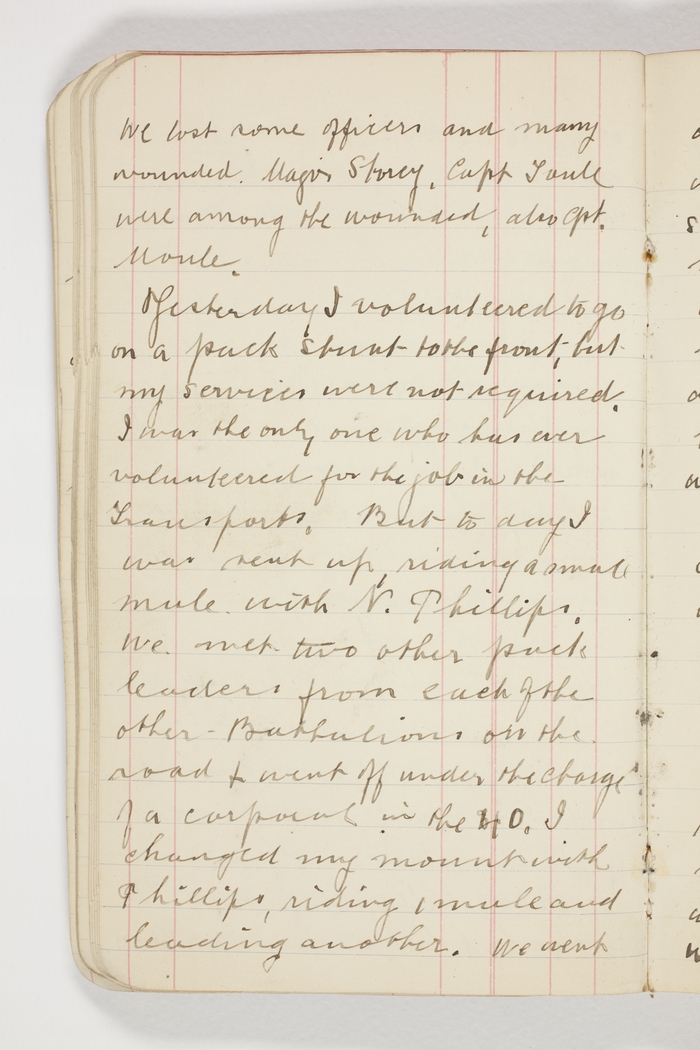 We lost some officers and many
wounded. Major Storey, Capt Soule
were among the wounded, also Cpt.
Moule.
Yesterday, I volunteered to go
on a pack stunt to the front, but
my services were not required.
I was the only one who has ever
volunteered for the job in the
Transports. But to day I
was sent up, riding a small
mule with N. Phillips.
We met two other pack
leaders from each of the
other Battalions on the
road & went off under the charge
of a corporal in the 40. I
changed my mount with
Phillips, riding 1 mule and
leading another. We went